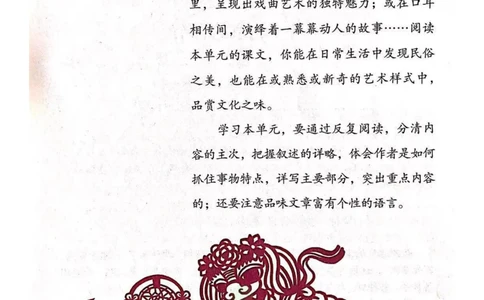 里，呈现出戏曲艺术的独特魅力；或在口耳
相传间，演绎着一幕幕动人的故事……阅读
本单元的课文，你能在日常生活中发现民俗
之美，也能在或熟悉或新奇的艺术样式中，
品赏文化之味。
学习本单元，要通过反复阅读，分清内
容的主次，把握叙述的详略，体会作者是如何
抓住事物特点，详写主要部分，突出重点内容
的；还要注意品味文章富有个性的语言。